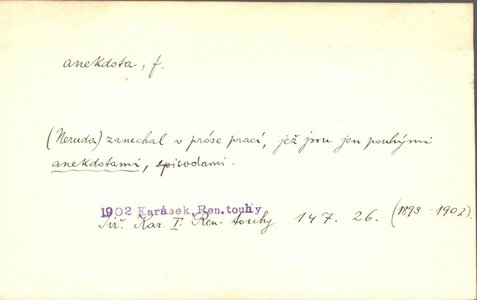 anekdota, f.
(Neruda) zanechal v próse prací, jež jsou jen pouhými
anekdotami, episodami.
1902 Karásek, Ren. touhy
Jiř. Kar. I. Ren. touhy 147. 26. (1893-1902).